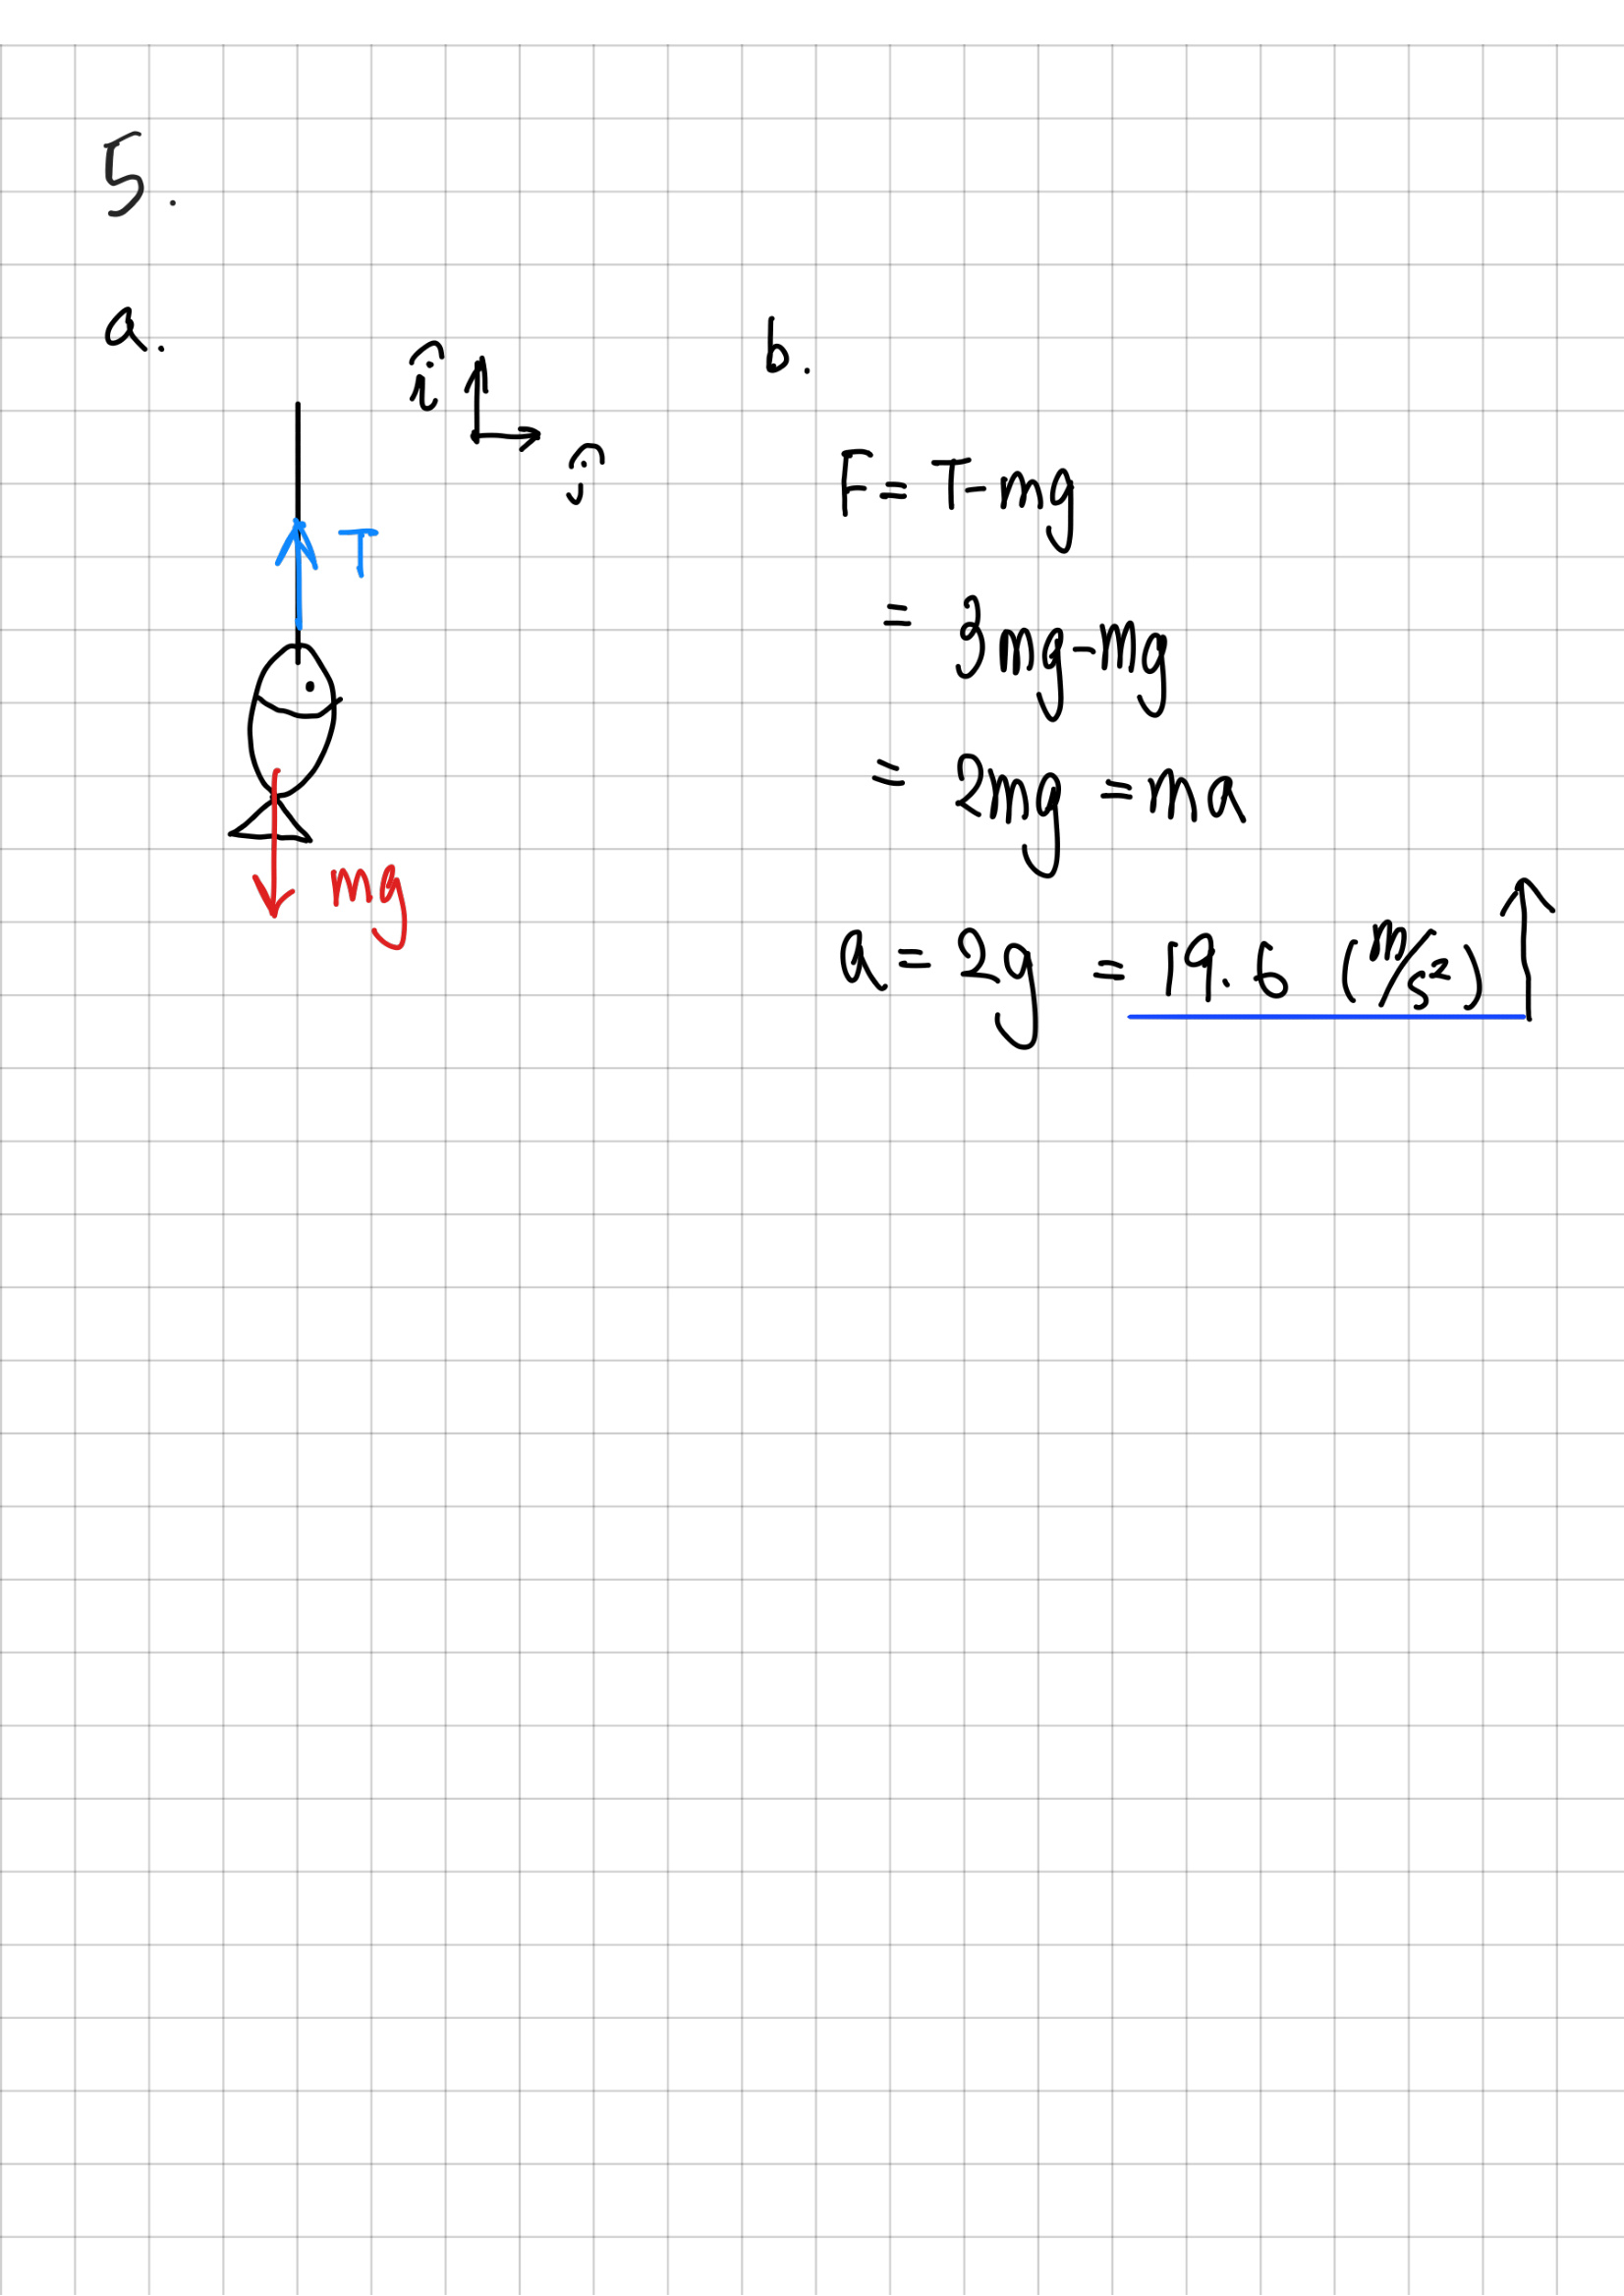 5.
a.
î
ĵ
T
mg
b.
F = T - mg
= 3mg - mg
= 2mg = ma
a = 2g = 19.6 (m/s²) ↑